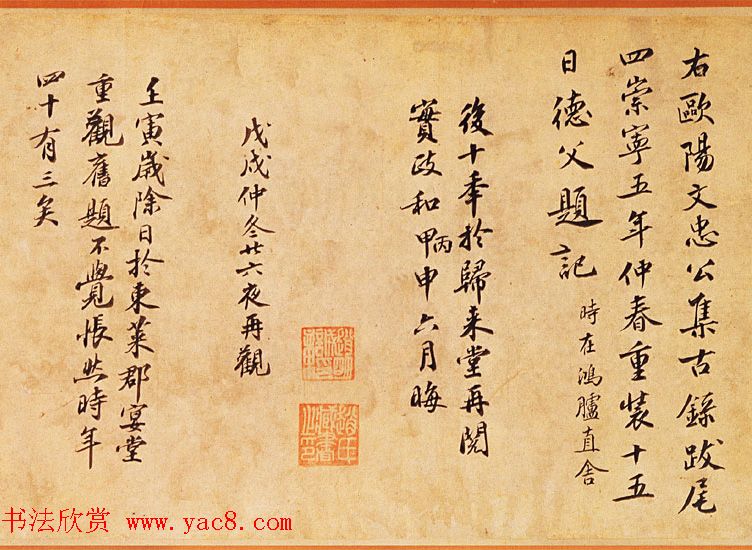 右歐陽文忠公集古錄跋尾
四崇寧五年仲春重裝十五
日德父題記 時在鴻臚直舍
後十年於歸来堂再閱
實政和甲丙申六月晦
戊戌仲冬廿六夜再觀
壬寅歲除日於東萊郡宴堂
重觀舊題不覺悵然時年
四十有三矣
书法欣赏 www.yac8.com